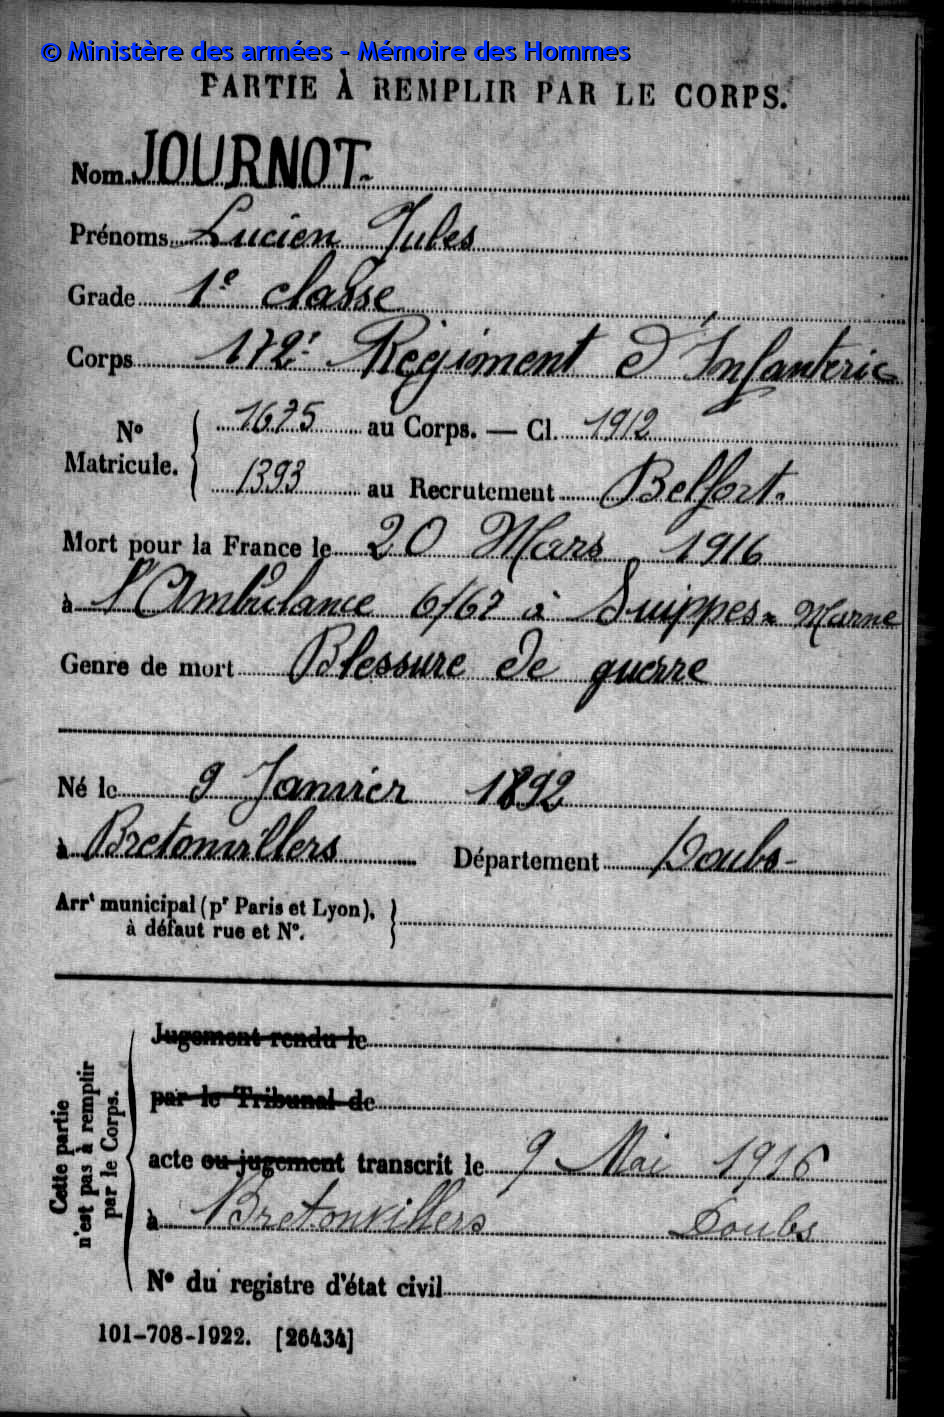 © Ministère des armées - Mémoire des Hommes
PARTIE À REMPLIR PAR LE CORPS.
Nom JOURNOT
Prénoms Lucien Jules
Grade 1e classe
Corps 172e Régiment d'Infanterie
N° Matricule. 1675 au Corps. — Cl. 1912
1393 au Recrutement Belfort.
Mort pour la France le 20 Mars 1916
à l'Ambulance 6/67 à Suippes - Marne
Genre de mort Blessure de guerre
Né le 9 Janvier 1892
à Bretonvillers Département Doubs -
Arrt municipal (pr Paris et Lyon),
à défaut rue et N°.
Cette partie
n'est pas à remplir
par le Corps.
Jugement rendu le
par le Tribunal de
acte ou jugement transcrit le 9 Mai 1916
à Bretonvillers Doubs
N° du registre d'état civil
101-708-1922. [26434]